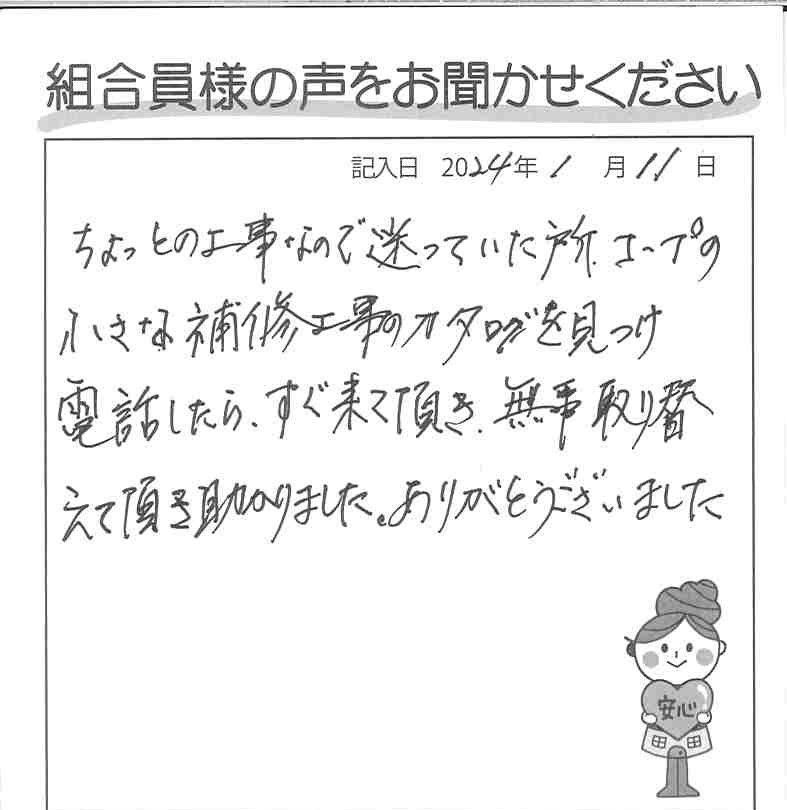 組合員様の声をお聞かせください
記入日 2024年 1 月 11 日
ちょっとの工事なので迷っていた所、コープの
小さな補修工事のカタログを見つけ
電話したら、すぐ来て頂き、無事取り替
えて頂き助かりました。ありがとうございました
安心